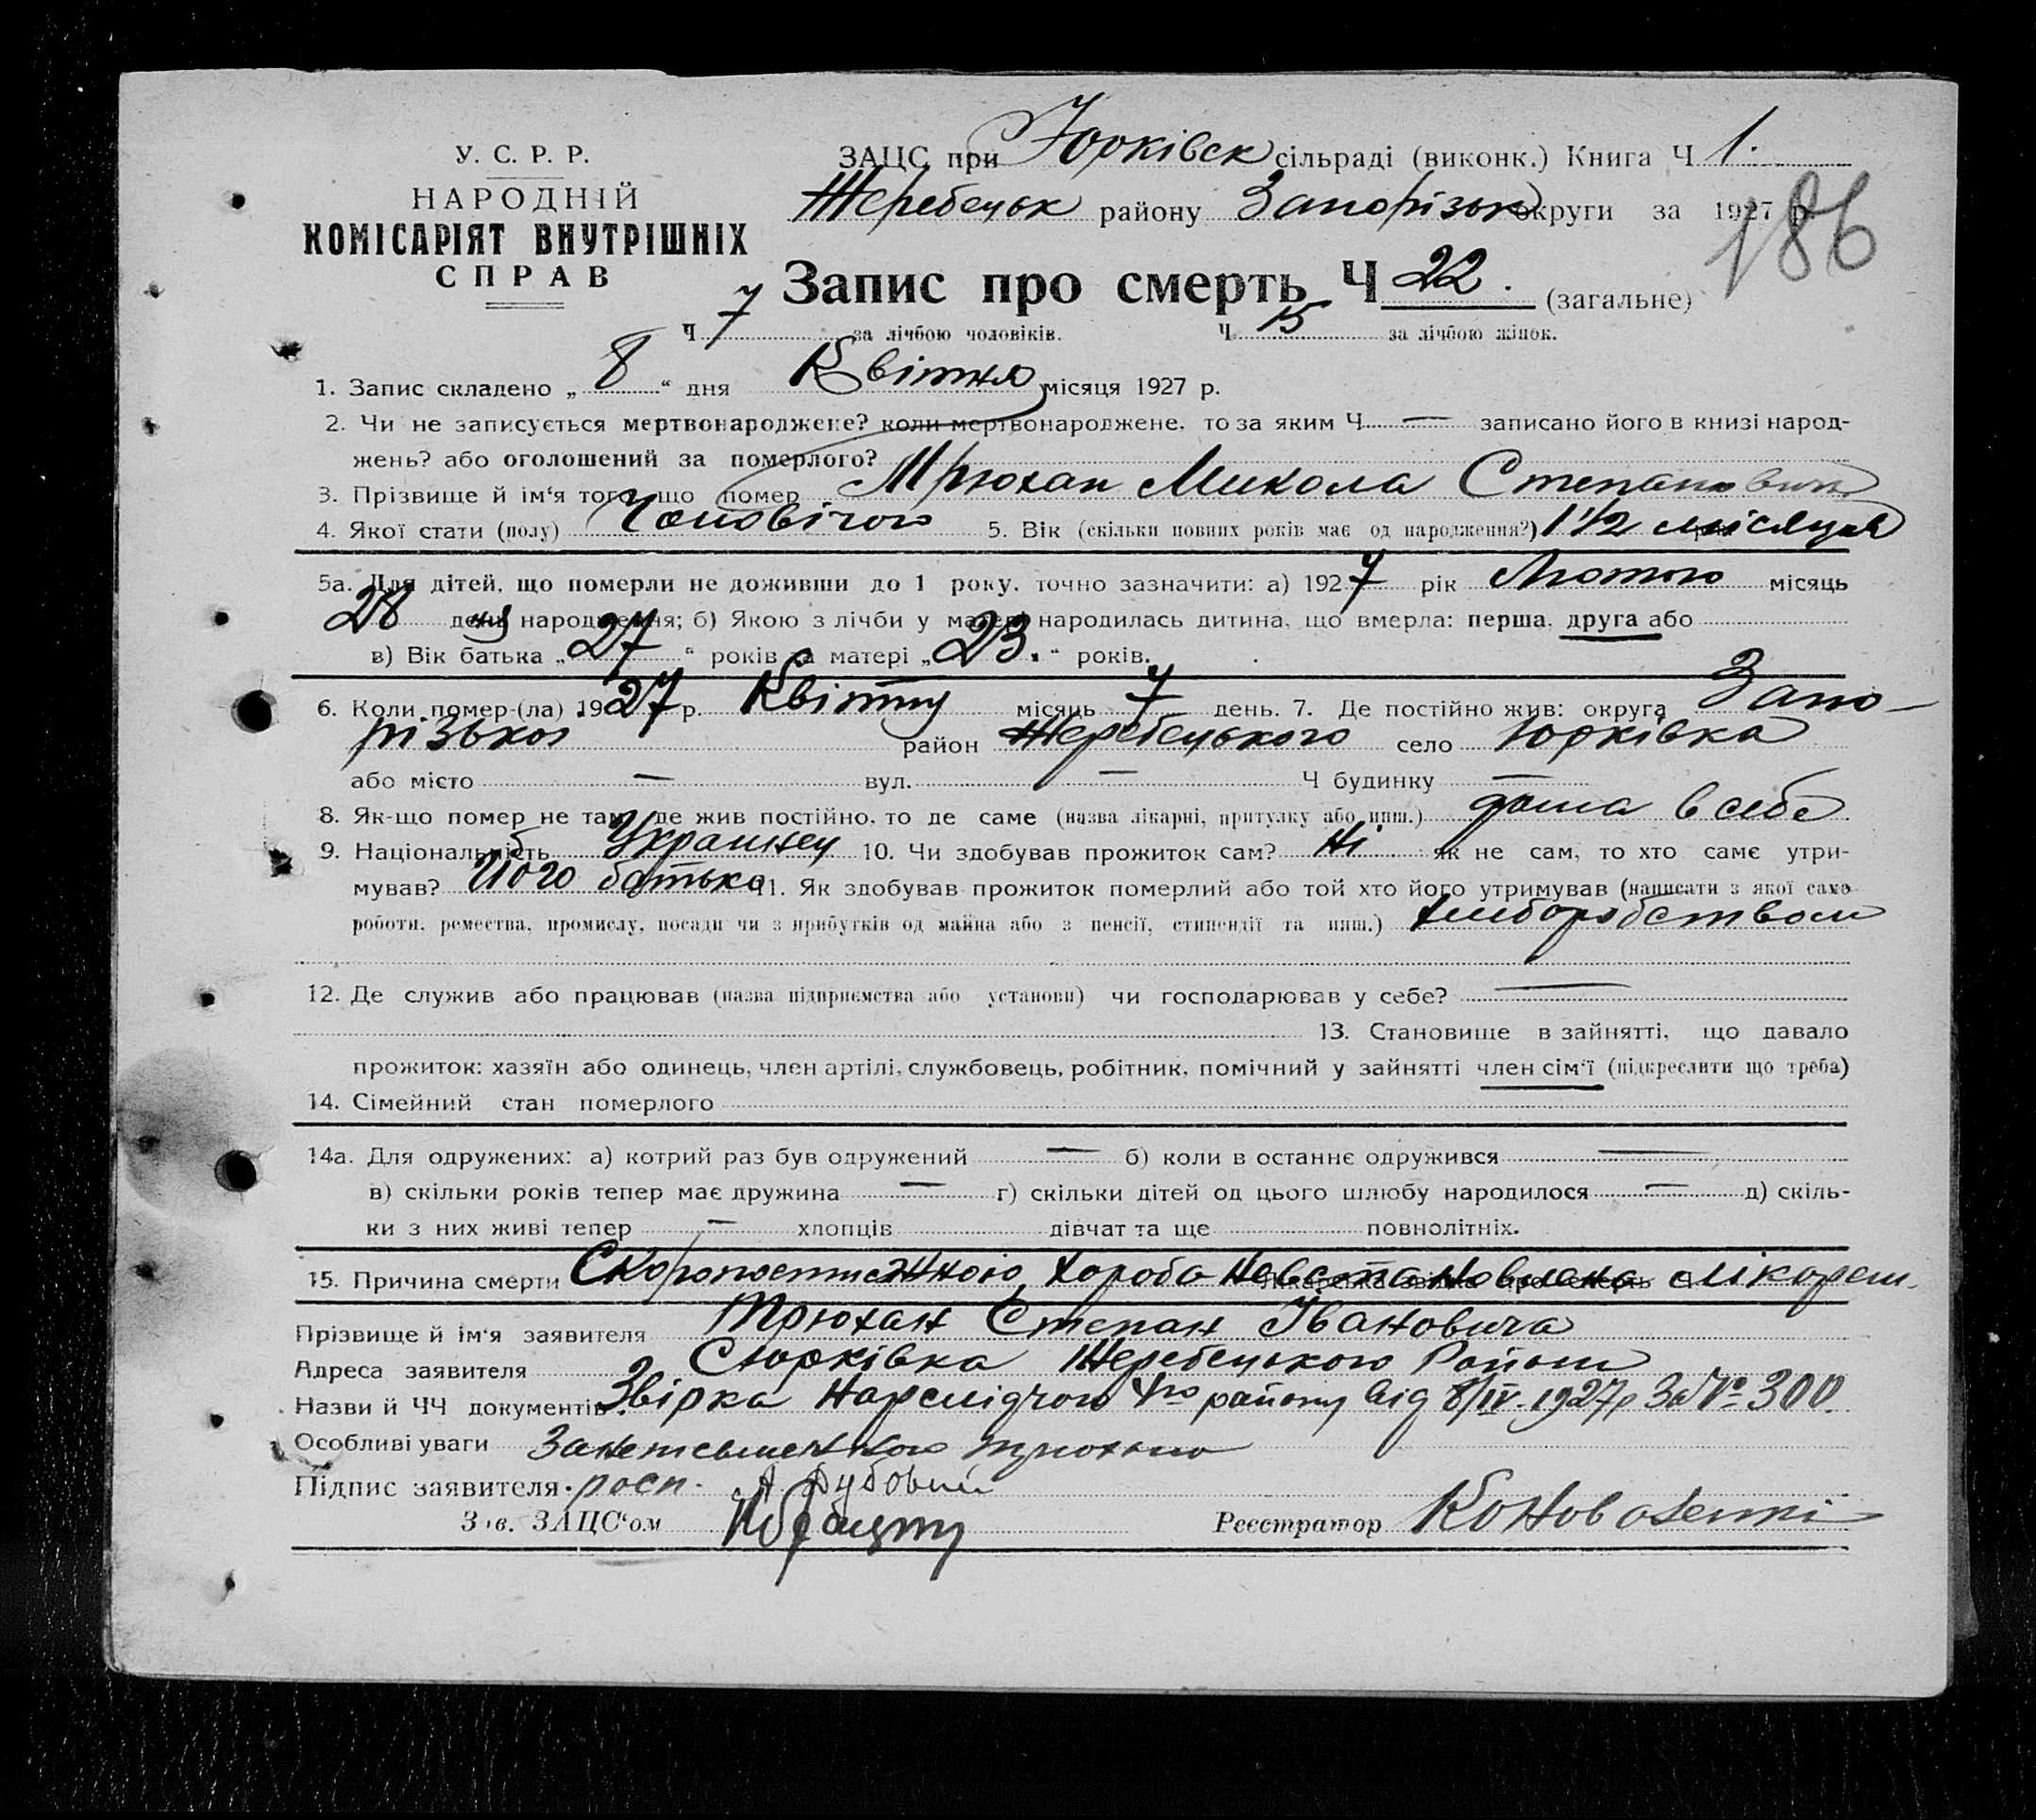 У. С. Р. Р.
НАРОДНІЙ
КОМІСАРІЯТ ВНУТРІШНІХ
СПРАВ
ЗАЦС при Юрківськ сільраді (виконк.) Книга Ч 1.
Жеребецьк району Запорізьк округи за 1927 р.
186
Запис про смерть Ч 22. (загальне)
Ч 7 за лічбою чоловіків. Ч 15 за лічбою жінок.
1. Запис складено „ 8 “ дня Квітня місяця 1927 р.
2. Чи не записується мертвонароджене? коли мертвонароджене, то за яким Ч — записано його в книзі народ-
жень? або оголошений за померлого?
3. Прізвище й ім‘я того, що помер Трюхан Микола Степанович
4. Якої стати (полу) Чоловічого 5. Вік (скільки повних років має од народження?) 1 1/2 місяця
5а. Для дітей, що померли не доживши до 1 року, точно зазначити: а) 1927 рік Лютого місяць
28 день народження; б) Якою з лічби у матері народилась дитина, що вмерла: перша, друга або
в) Вік батька „ 27 “ років та матері „ 23. “ років.
6. Коли помер-(ла) 1927 р. Квітну місяць 7 день. 7. Де постійно жив: округа Запо-
різької район Жеребецького село Юрківка
або місто — вул. — Ч будинку —
8. Як-що помер не там, де жив постійно, то де саме (назва лікарні, притулку або инш.) дома в себе
9. Національність Українец 10. Чи здобував прожиток сам? Ні як не сам, то хто саме утри-
мував? Його батько 11. Як здобував прожиток померлий або той хто його утримував (написати з якої само
роботи, ремества, промислу, посади чи з прибутків од майна або з пенсії, стипендії та инш.) хліборобством
12. Де служив або працював (назва підприємства або установи) чи господарював у себе? —
13. Становище в зайнятті, що давало
прожиток: хазяїн або одинець, член артілі, службовець, робітник, помічний у зайнятті член сім‘ї (підкреслити що треба)
14. Сімейний стан померлого
14а. Для одружених: а) котрий раз був одружений — б) коли в останнє одружився —
в) скільки років тепер має дружина — г) скільки дітей од цього шлюбу народилося — д) скіль-
ки з них живі тепер — хлопців дівчат та ще повнолітніх.
15. Причина смерти Скоропостижною, хороба невстановлена лікарем
Прізвище й ім‘я заявителя Трюхан Степан Івановича
Адреса заявителя С Юрківка Жеребецького Району
Назви й ЧЧ документів Звірка Нарслідчого району від 8/IV. 1927р За № 300.
Особливі уваги За неписьменного Трюхана
Підпис заявителя росп. А Дубовий
Зав. ЗАЦС‘ом
Реєстратор